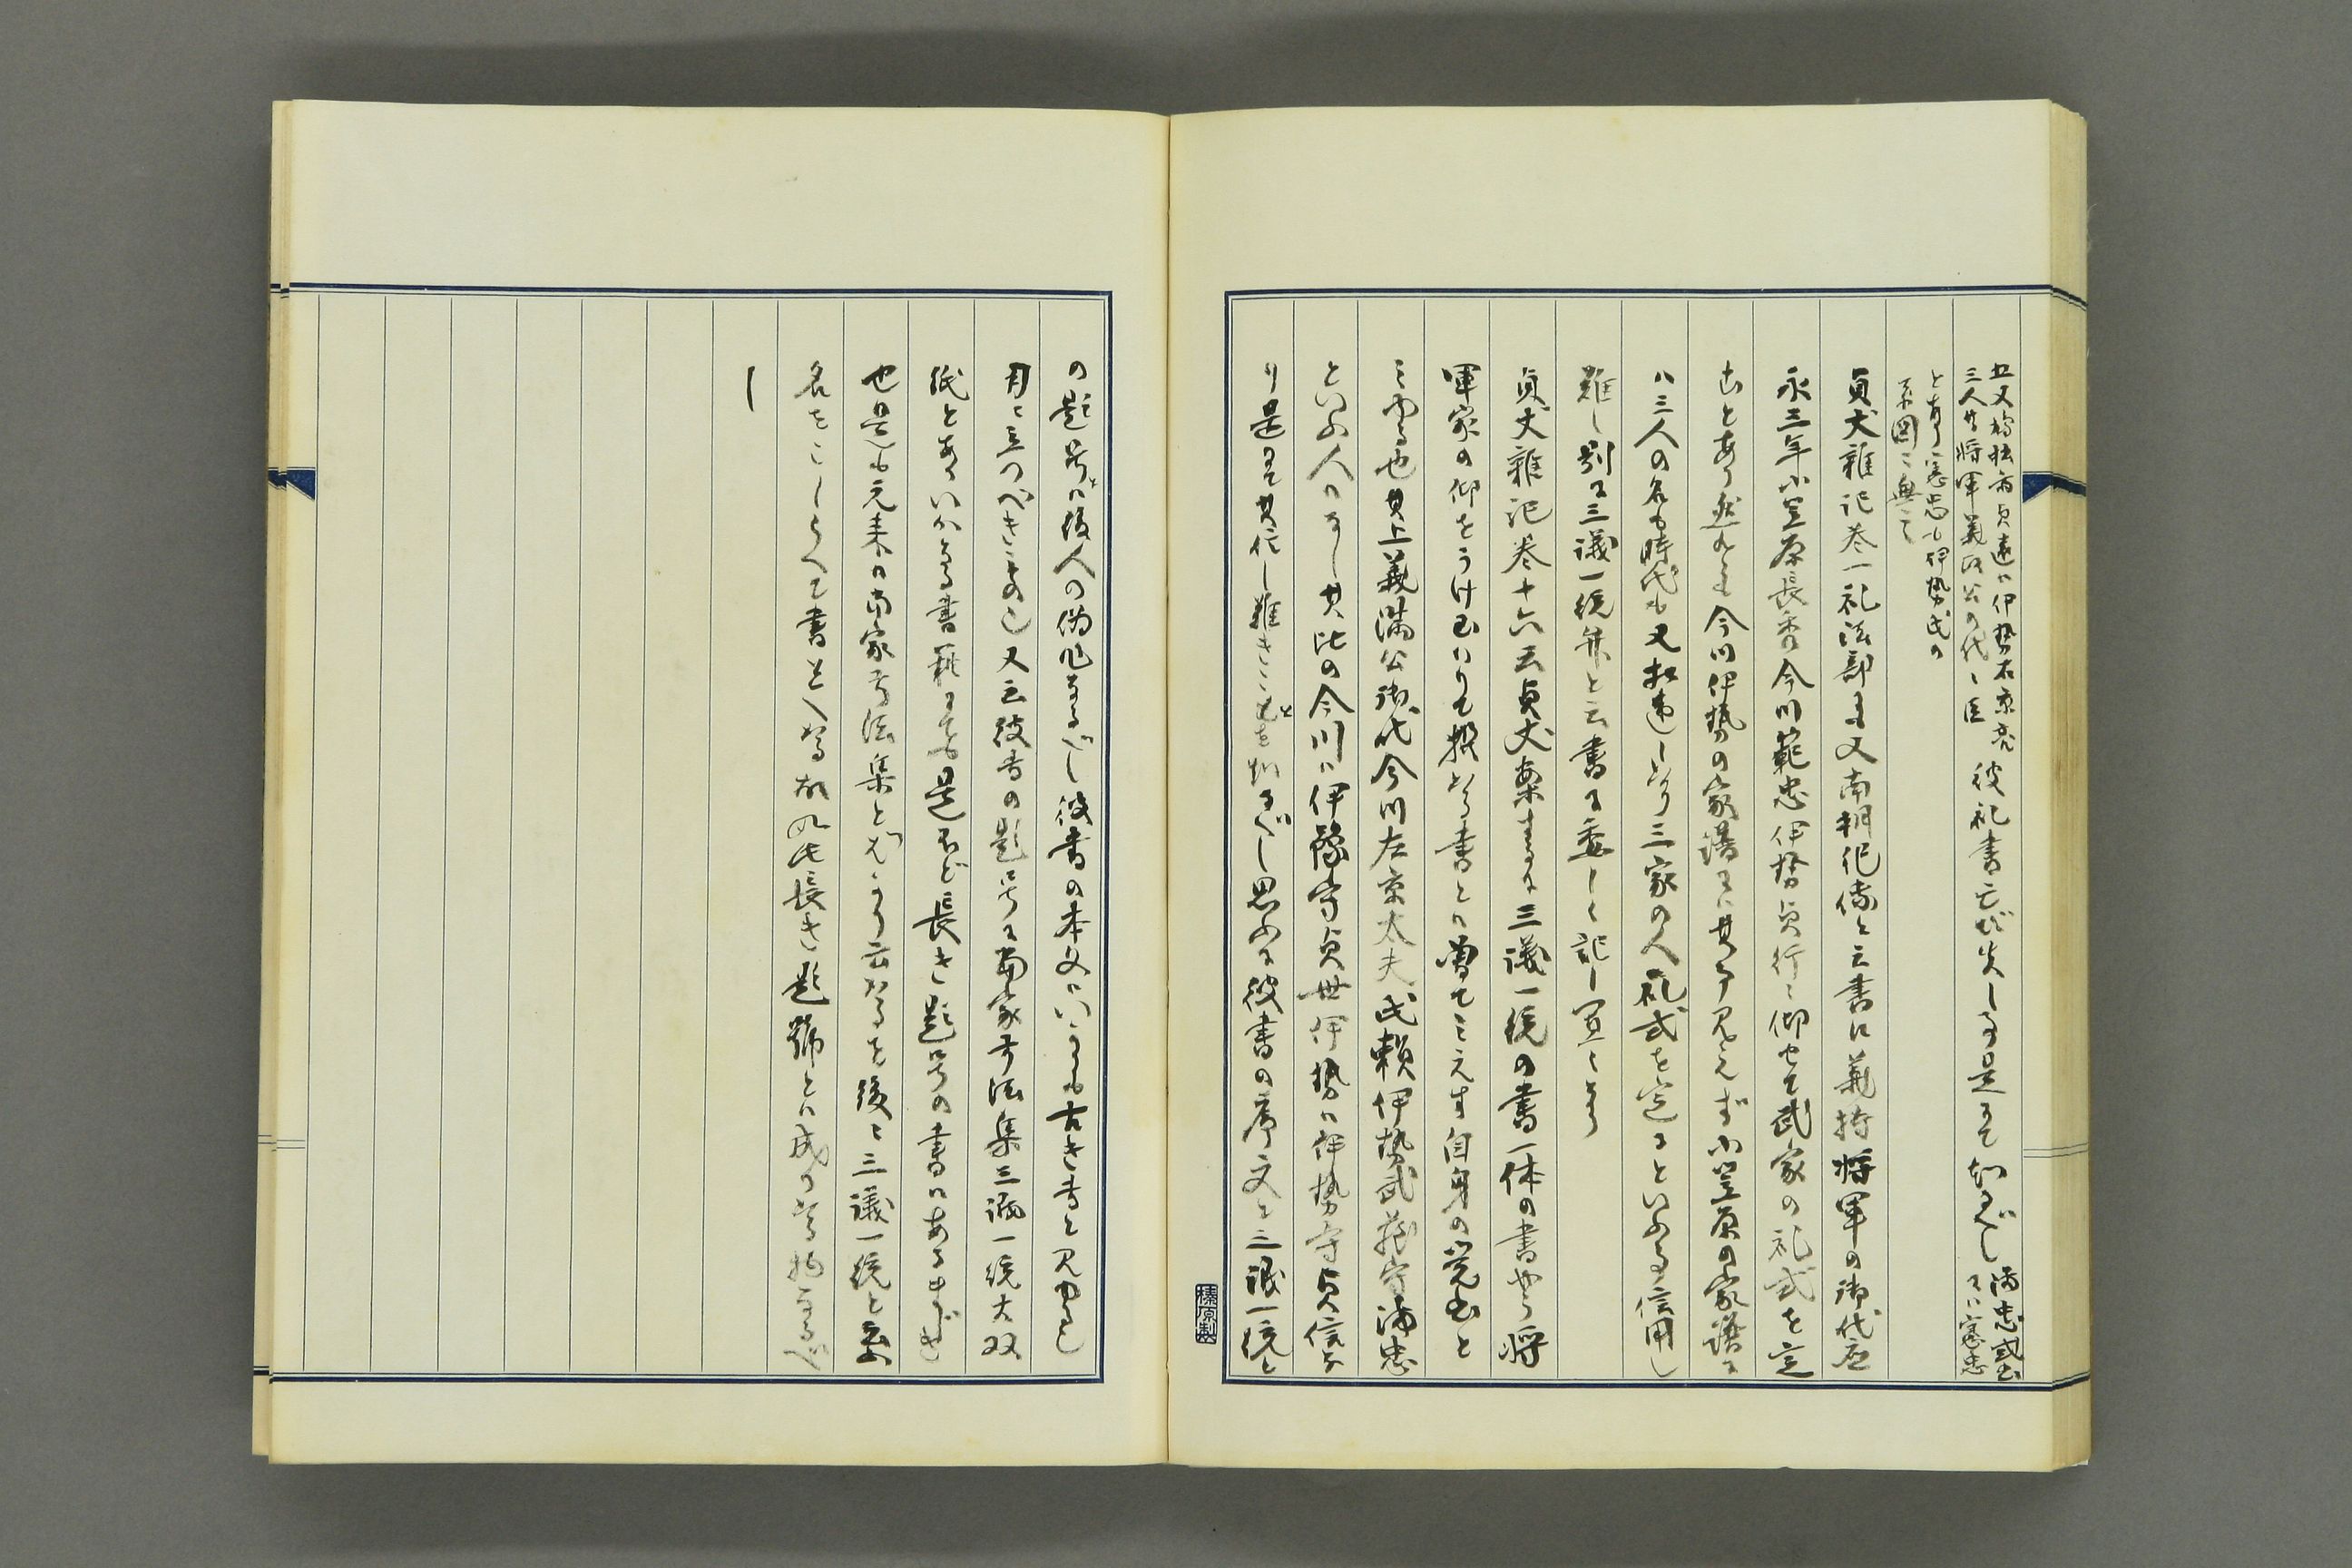 三人共将軍義政公の代之臣
とあり憲忠も伊勢氏の
系図ニ無之
貞丈雑記巻一礼法部に又南朝紀伝と云書に義持将軍の御代応
永三年小笠原長秀今川範忠伊勢貞行に仰せて武家の礼式を定
むとあり然れども今川伊勢の家譜には其事見えず小笠原の家譜に
ハ三人の名も時代も又相違しけり三家の人礼式を定るといふ事信用し
難し別に三議一統弁と云書に委しく記し置しなり
貞丈雑記巻十六云貞丈案ずるに三議一統の書一体の書やう将
軍家の仰をうけ玉はりて撰ける書とは曽てミえず自身の覚書と
ミゆる也其上義満公御代今川左京太夫氏頼伊勢武蔵守満忠
といふ人はなし其比の今川は伊豫守貞世伊勢は伊勢守貞信な
り是にて其信し難きことを知るべし思ふに彼書の序文と三議一統と
の題号は後人の偽作なるべし彼書の本文はいかにも古き書と見ゆるし
用に立つべきことあり又云彼書の題号に当家弓法集三議一統大双
紙とありいかなる書籍にても是ほど長き題号の書はあるまじき
也是も元来は当家弓法集とばかり云けるを後に三議一統と云
名をこしらへて書き入ける故如此長き題號とは成りける物なるべ
し
榛原製